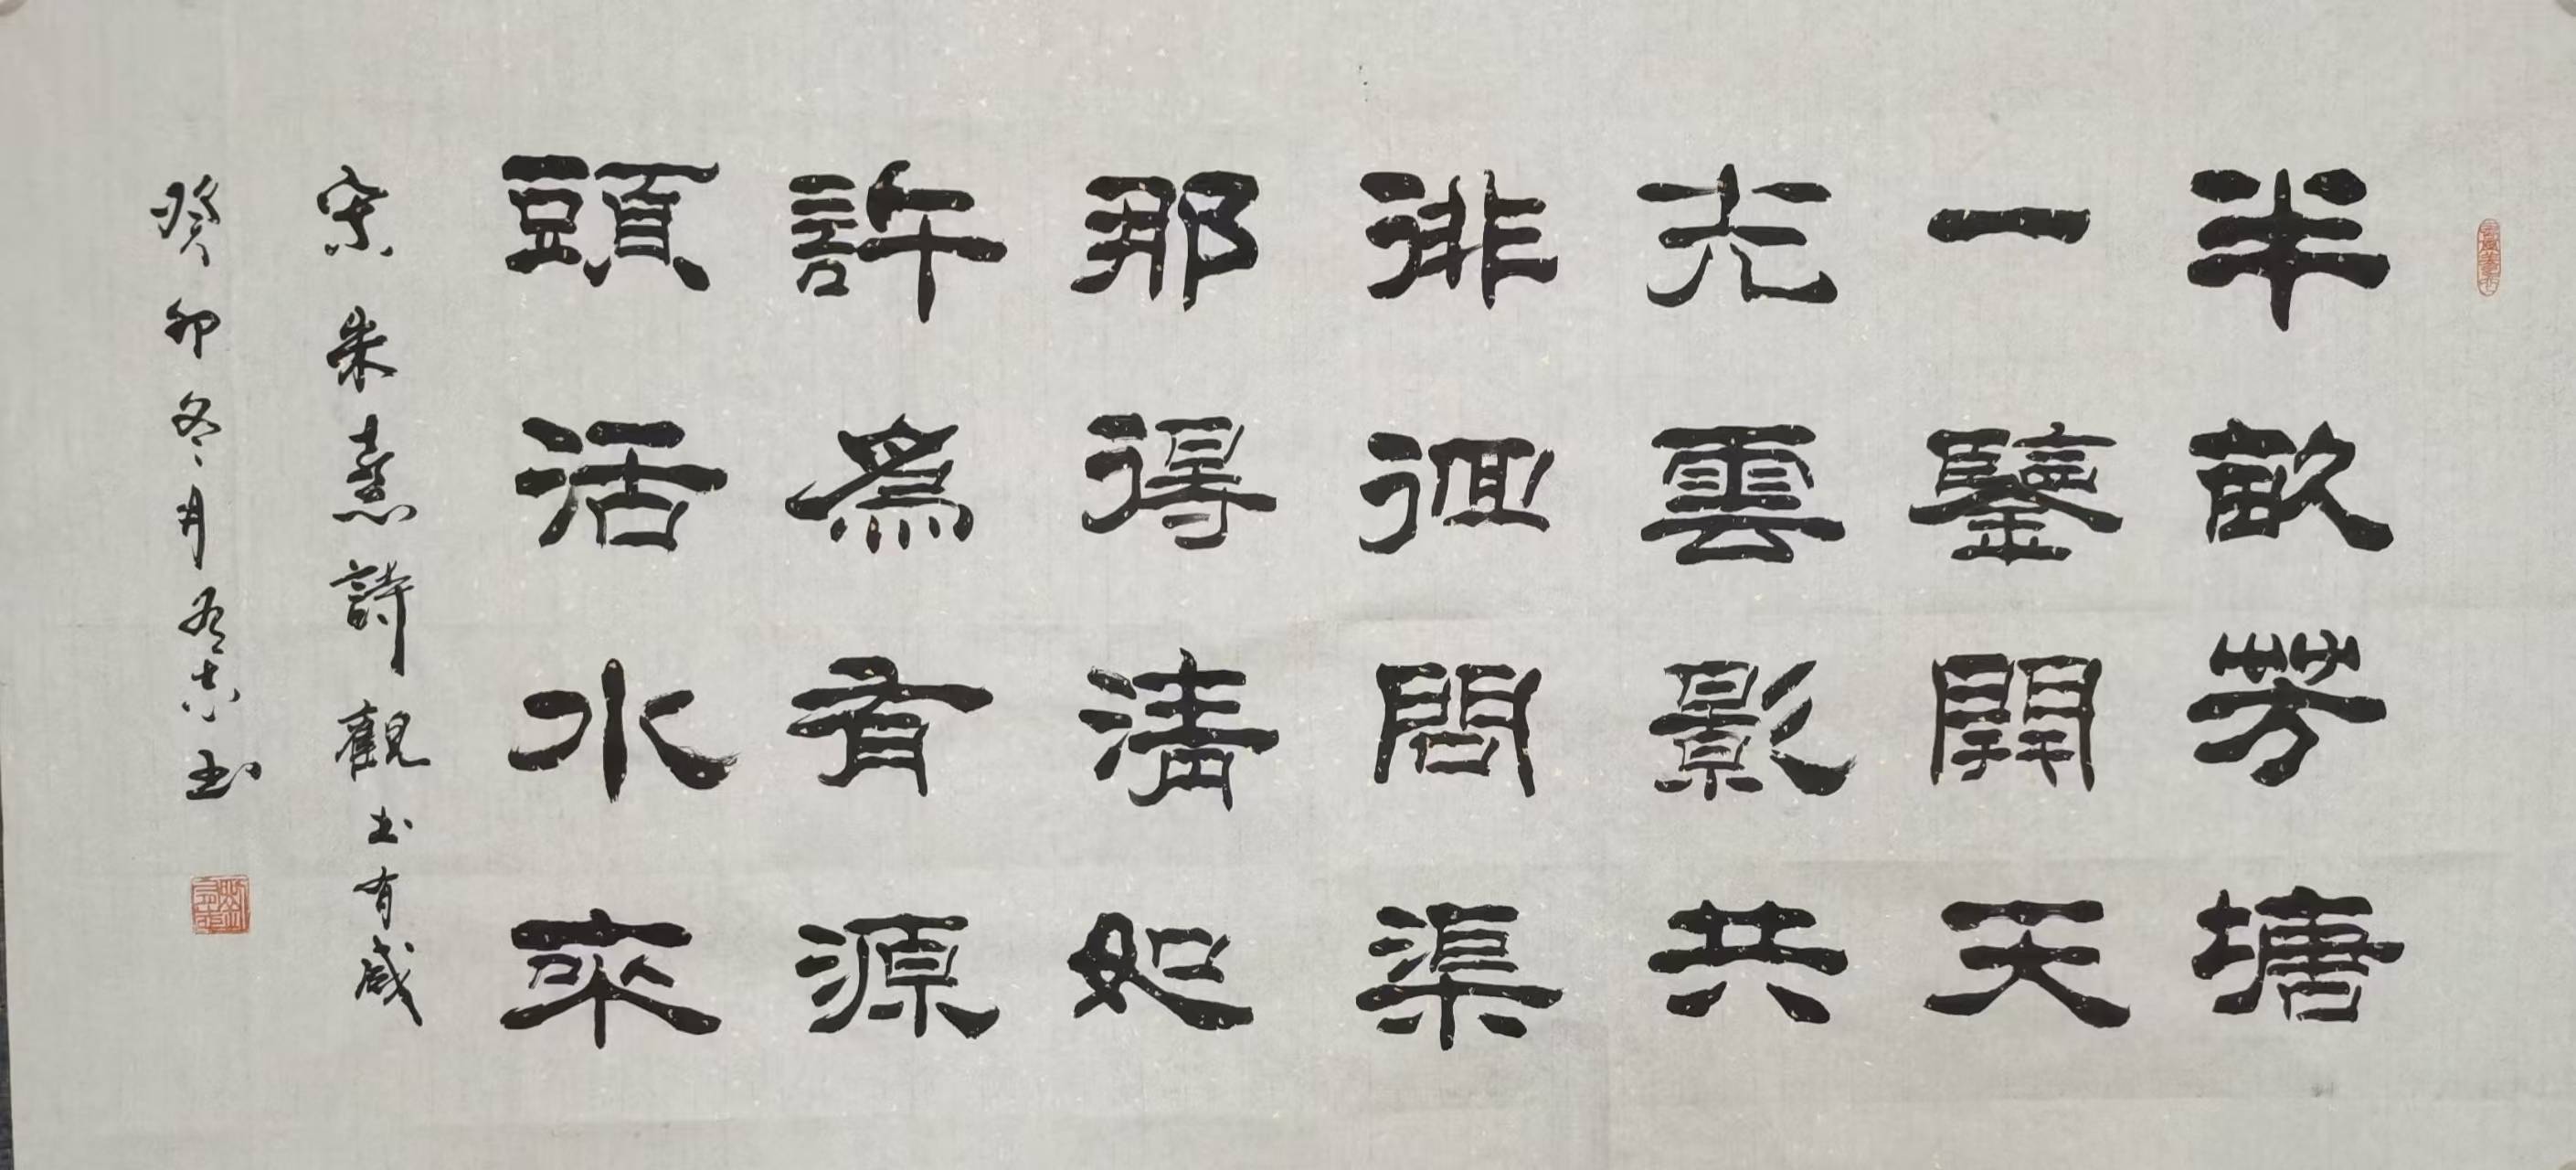 半畝芳塘
一鑒開天
光雲影共
徘徊問渠
那得清如
許為有源
頭活水來
宋朱熹詩觀书有感
癸卯冬月
书